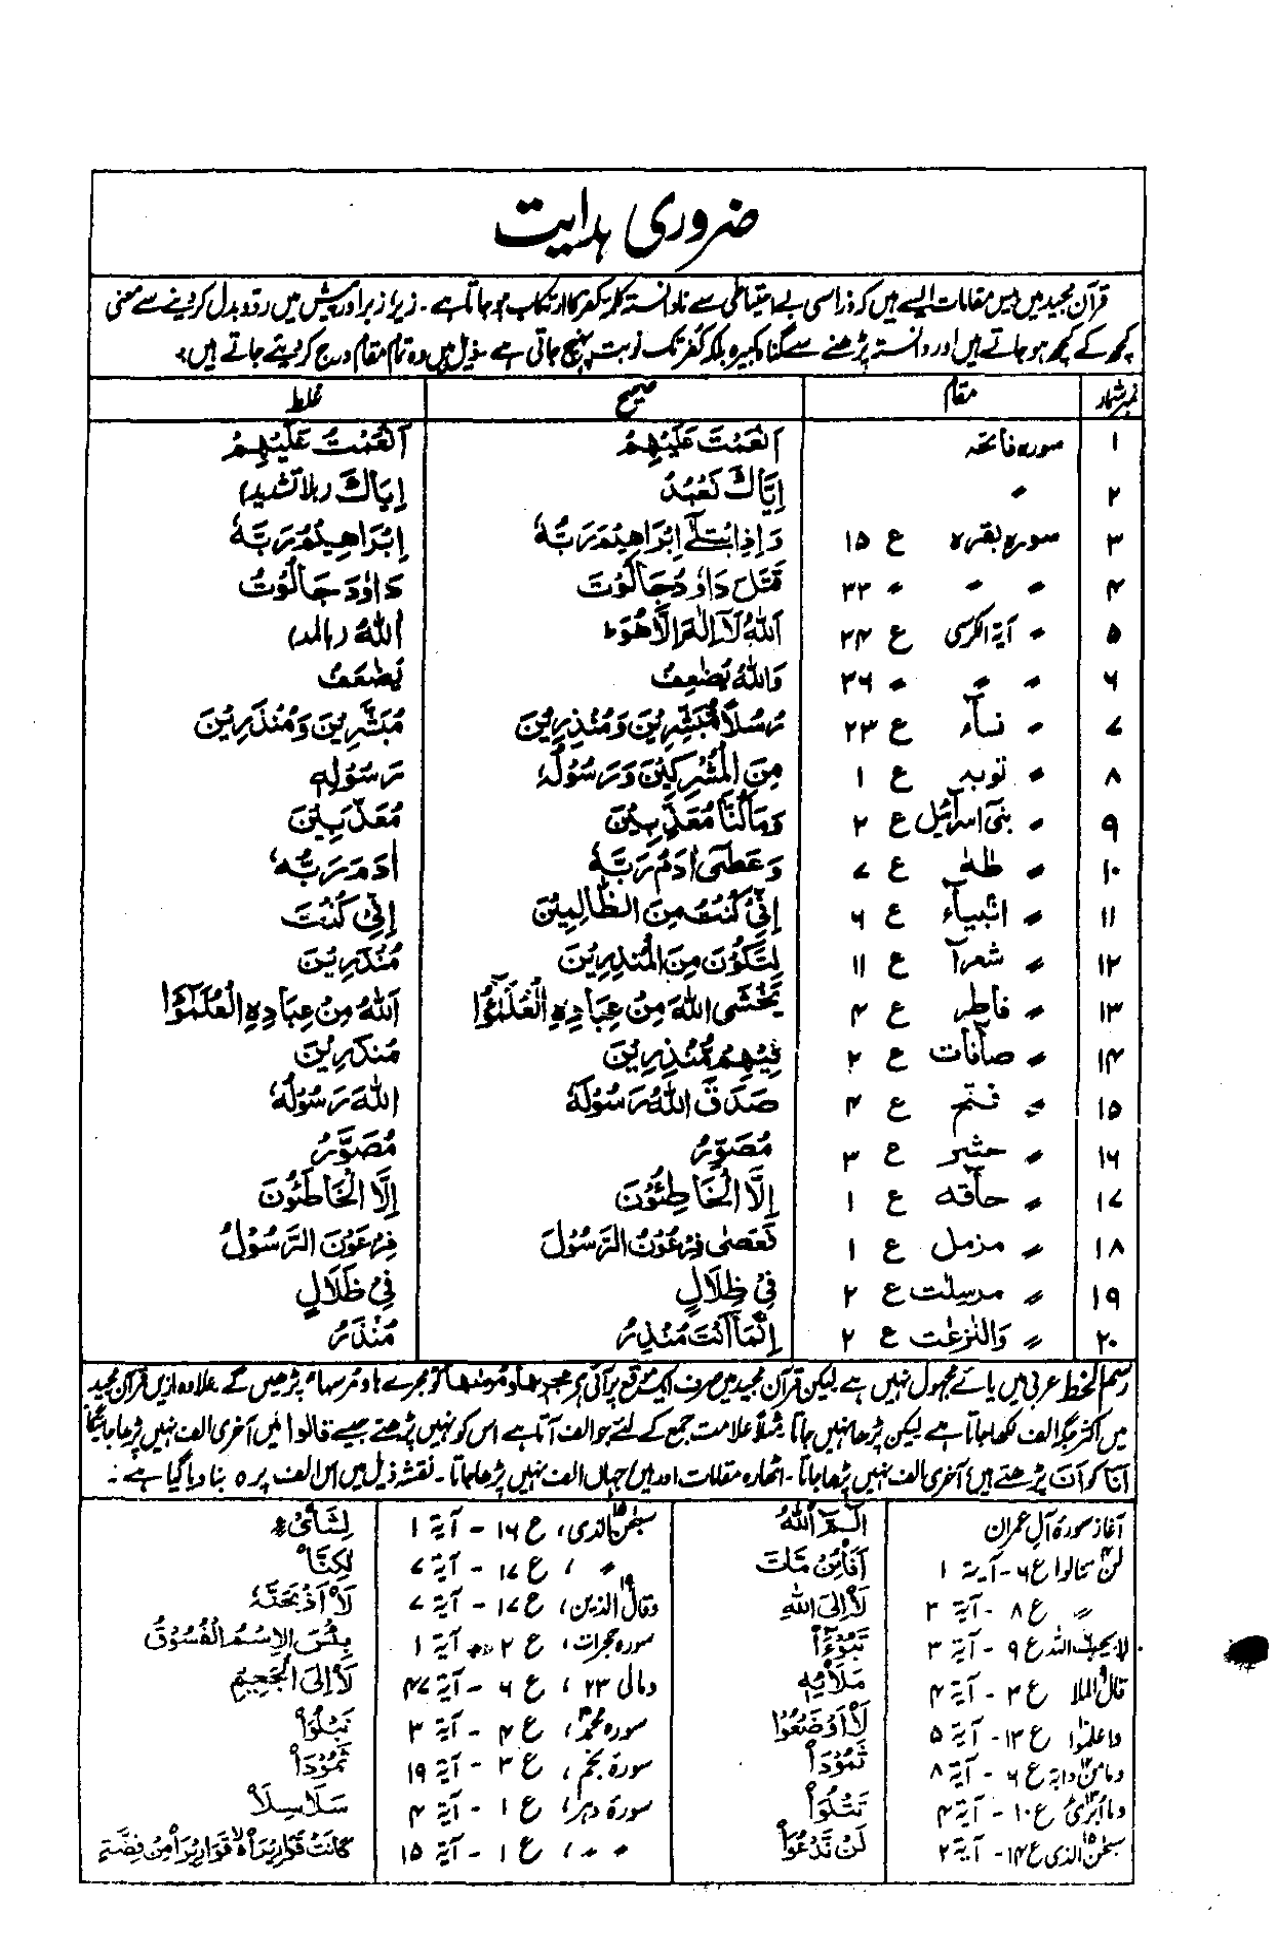 ضروری ہدایت
قرآن مجید میں بیس مقامات ایسے ہیں کہ ذرا سی بے احتیاطی سے نادانستہ کلمۂ کفر کا ارتکاب ہو جاتا ہے۔ زیر زبر اور پیش میں ردو بدل کر دینے سے معنی
کچھ کے کچھ ہو جاتے ہیں اور دانستہ پڑھنے سے گناہ کبیرہ بلکہ کفر تک نوبت پہنچ جاتی ہے۔ ذیل میں وہ تمام مقام درج کر دیئے جاتے ہیں:
نمبر شمار مقام صحیح غلط
۱ سورہ فاتحہ اَنْعَمْتَ عَلَيْهِمْ اَنْعَمْتُ عَلَيْهِمْ
۲ 〃 اِيَّاكَ نَعْبُدُ اِيَاكَ (بلا تشدید)
۳ سورہ بقرہ ع ۱۵ وَاِذِابْتَلٰۤى اِبْرَاهِيْمَ رَبُّهٗ اِبْرَاهِيْمُ رَبَّهٗ
۴ 〃 〃 〃 ۳۳ قَتَلَ دَاوٗدُ جَالُوْتَ دَاوٗدَ جَالُوْتُ
۵ 〃 آیۃ الکرسی ع ۳۴ اَللّٰهُ لَاۤ اِلٰهَ اِلَّا هُوَ اٰللّٰهُ (بالمد)
۶ 〃 〃 〃 ۳۶ وَاللّٰهُ يُضٰعِفُ يُضٰعَفُ
۷ 〃 نسآء ع ۲۳ رُسُلًا مُّبَشِّرِيْنَ وَمُنْذِرِيْنَ مُبَشَّرِيْنَ وَمُنْذَرِيْنَ
۸ 〃 توبہ ع ۱ مِنَ الْمُشْرِكِيْنَ وَرَسُوْلُهٗ رَسُوْلِهٖ
۹ 〃 بنی اسرآئیل ع ۲ وَمَا كُنَّا مُعَذِّبِيْنَ مُعَذَّبِيْنَ
۱۰ 〃 طٰہٰ ع ۷ وَعَصٰۤى اٰدَمُ رَبَّهٗ اٰدَمَ رَبُّهٗ
۱۱ 〃 انبیآء ع ۶ اِنِّيْ كُنْتُ مِنَ الظَّالِمِيْنَ اِنِّيْ كُنْتَ
۱۲ 〃 شعرآ ع ۱۱ لِتَكُوْنَ مِنَ الْمُنْذِرِيْنَ مُنْذَرِيْنَ
۱۳ 〃 فاطر ع ۴ يَخْشَى اللّٰهَ مِنْ عِبَادِهِ الْعُلَمٰٓؤُا اَللّٰهُ مِنْ عِبَادِهِ الْعُلَمٰٓؤَا
۱۴ 〃 صآفات ع ۲ فِيْهِمْ مُّنْذِرِيْنَ مُنْذَرِيْنَ
۱۵ 〃 فتح ع ۴ صَدَقَ اللّٰهُ رَسُوْلَهٗ اللّٰهَ رَسُوْلُهٗ
۱۶ 〃 حشر ع ۳ مُصَوِّرُ مُصَوَّرُ
۱۷ 〃 حآقہ ع ۱ اِلَّا الْخَاطِئُوْنَ اِلَّا الْخَاطَئُوْنَ
۱۸ 〃 مزمل ع ۱ فَعَصٰى فِرْعَوْنُ الرَّسُوْلَ فِرْعَوْنَ الرَّسُوْلُ
۱۹ 〃 مرسلٰت ع ۲ فِيْ ظِلَالٍ فِيْ ظَلَالٍ
۲۰ 〃 والنّٰزعٰت ع ۲ اِنَّمَاۤ اَنْتَ مُنْذِرُ مُنْذَرُ
رسم الخط عربی میں یائے مجہول نہیں ہے لیکن قرآن مجید میں صرف ایک موقع پر آئی ہے پڑھیں گے۔ علاوہ ازیں قرآن مجید
میں اکثر جگہ الف لکھا جاتا ہے لیکن پڑھا نہیں جاتا مثلاً علامت جمع کے لئے جو الف آتا ہے اس کو نہیں پڑھتے جیسے قالوا میں آخری الف نہیں پڑھا جائیگا
اَنَا کو اَنَ پڑھتے ہیں آخری الف نہیں پڑھا جاتا۔ اٹھارہ مقامات اور ہیں جہاں الف نہیں پڑھا جاتا۔ نقشہ ذیل میں اس الف پر ہ بنا دیا گیا ہے :
آغاز سورۃ آل عمران الٓمّٓ اَللّٰهُ سبحٰن الذی، ع ۱۶ - آیۃ ۱ لِشَاىْءٍ
لن تنالوا ع ۶ - آیۃ ۱ اَفَاۡئِنْ مَّاتَ 〃 ، ع ۱۷ - آیۃ ۷ لٰكِنَّاۡ
〃 ع ۸ - آیۃ ۳ لَاۡ اِلَى اللّٰهِ وقال الذین، ع ۱۷ - آیۃ ۷ لَاۡ اَذْبَحَنَّهٗ
لا یحب اللہ ع ۹ - آیۃ ۳ تَبُوْٓءَاۡ سورہ حجرات، ع ۲ آیۃ ۱ بِئْسَ الِاسْمُ الْفُسُوْقُ
قال الملا ع ۳ - آیۃ ۴ مَلَاۡئِهٖ ومالی ۲۳، ع ۶ - آیۃ ۴۷ لَاۡ اِلَى الْجَحِيْمِ
واعلموا ع ۱۳ - آیۃ ۵ لَاۡ اَوْضَعُوْا سورہ محمد، ع ۴ - آیۃ ۳ نَبْلُوَاۡ
وما من دابۃ ع ۶ - آیۃ ۸ ثَمُوْدَاۡ سورۃ نجم، ع ۳ - آیۃ ۱۹ ثَمُوْدَاۡ
وما ابری ع ۱۰ - آیۃ ۴ تَتْلُوَاۡ سورۃ دہر، ع ۱ - آیۃ ۴ سَلَاسِلَاۡ
سبحٰن الذی ع ۱۴ - آیۃ ۲ لَنْ نَّدْعُوَاۡ 〃 〃، ع ۱ - آیۃ ۱۵ كَانَتْ قَوَارِيْرَاۡ قَوَارِيْرَاۡ مِنْ فِضَّةٍ